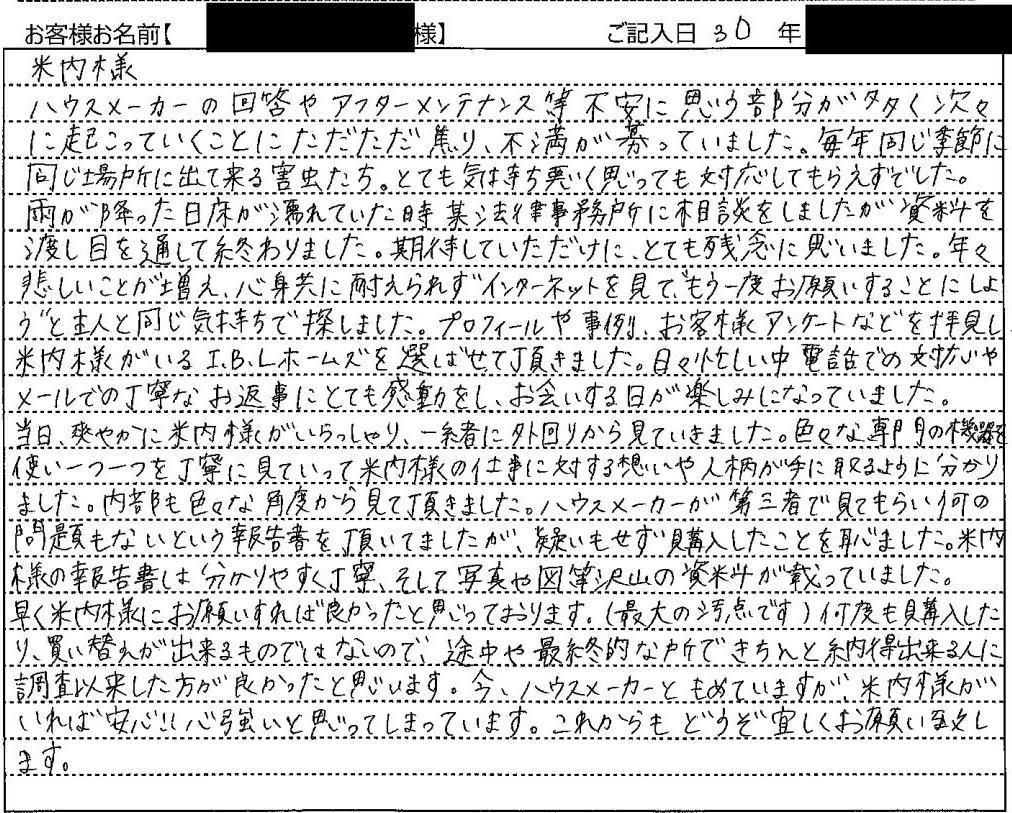 お客様お名前【 様】 ご記入日 30 年
米内様
ハウスメーカーの回答やアフターメンテナンス等不安に思う部分が多く次々
に起こっていくことにただただ焦り、不満が募っていました。毎年同じ季節に
同じ場所に出て来る害虫たち。とても気持ち悪く思っても対応してもらえずでした。
雨が降った日床が濡れていた時某法律事務所に相談をしましたが資料を
渡し目を通して終わりました。期待していただけに、とても残念に思いました。年々
悲しいことが増え、心身共に耐えられずインターネットを見て、もう一度お願いすることにしよ
う"と主人と同じ気持ちで探しました。プロフィールや事例、お客様アンケートなどを拝見し
米内様がいるI.B.Lホームズを選ばせて頂きました。日々忙しい中電話での対応や
メールでの丁寧なお返事にとても感動をし、お会いする日が楽しみになっていました。
当日、爽やかに米内様がいらっしゃり、一緒に外回りから見ていきました。色々な専門の機器を
使い一つ一つを丁寧に見ていって米内様の仕事に対する想いや人柄が手に取るように分かり
ました。内部も色々な角度から見て頂きました。ハウスメーカーが第三者で見てもらい何の
問題もないという報告書を頂いてましたが、疑いもせず購入したことを恥じました。米内
様の報告書は分かりやすく丁寧、そして写真や図等沢山の資料が載っていました。
早く米内様にお願いすれば良かったと思っております。(最大の汚点です)何度も購入した
り、買い替えが出来るものではないので、途中や最終的な所できちんと納得出来る人に
調査以来した方が良かったと思います。今、ハウスメーカーともめていますが、米内様が
いれば安心!!心強いと思ってしまっています。これからもどうぞ宜しくお願い致し
ます。